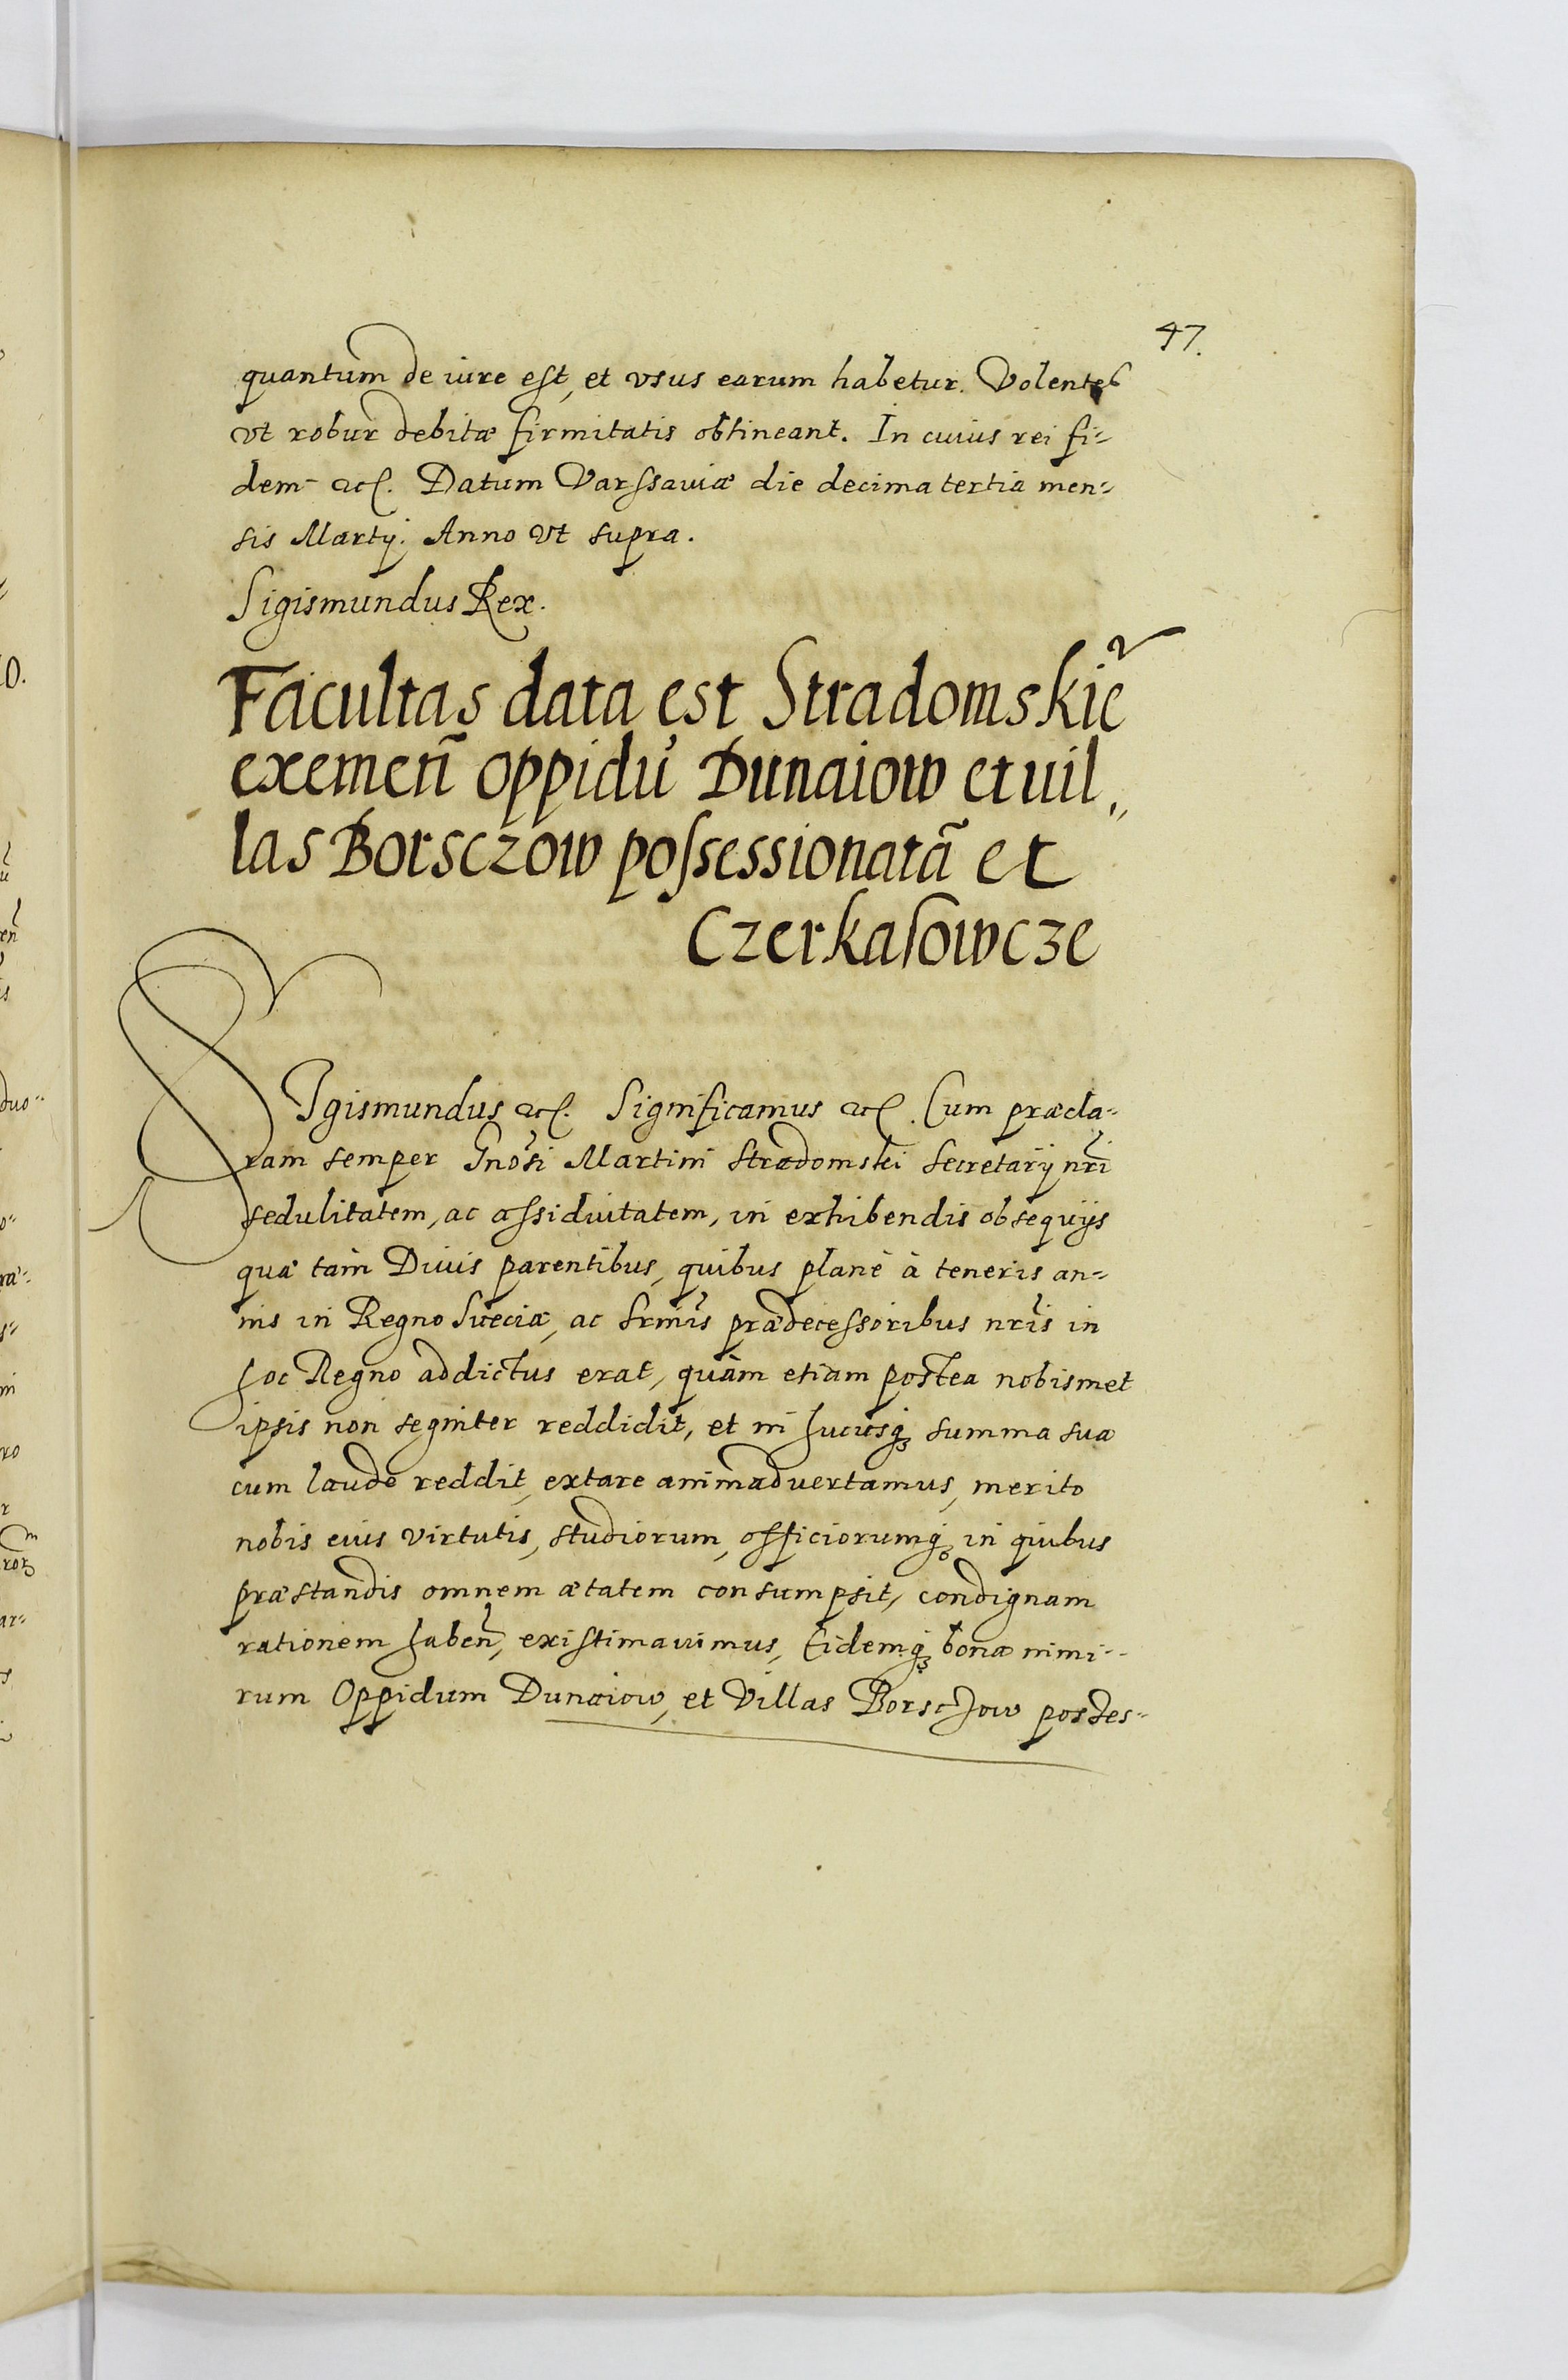 47.
quantum de iure est, et vsus earum habetur. Volentes
vt robur debitæ firmitatis obtineant. In cuius rei fi-
dem etc. Datum Varssauiæ die decima tertia men-
sis Martij. Anno vt supra.
Sigismundus Rex.
Facultas data est Stradomskie
exemeñ oppidu Dunaiow et uil,,
las Borsczow possessionatã et
Czerkasowcze
SIgismundus etc. Significamus etc. Cum præcla-
ram semper Gnosi Martini Stradomski Secretarij nri
sedulitatem, ac assiduitatem, in exhibendis obsequijs
quæ tam Diuis parentibus, quibus planè à teneris an-
nis in Regno Sueciæ, ac Srmis prædecessoribus nris in
hoc Regno addictus erat, quàm etiam postea nobismet
ipsis non segniter reddidit, et in hucusq summa sua
cum laude reddit, extare animaduertamus, merito
nobis eius virtutis, studiorum, officiorumq in quibus
præstandis omnem ætatem consumpsit, condignam
rationem habeñ, existimauimus, Eidemq bona nimi-
rum Oppidum Dunaiow, et Villas Borschow posses-